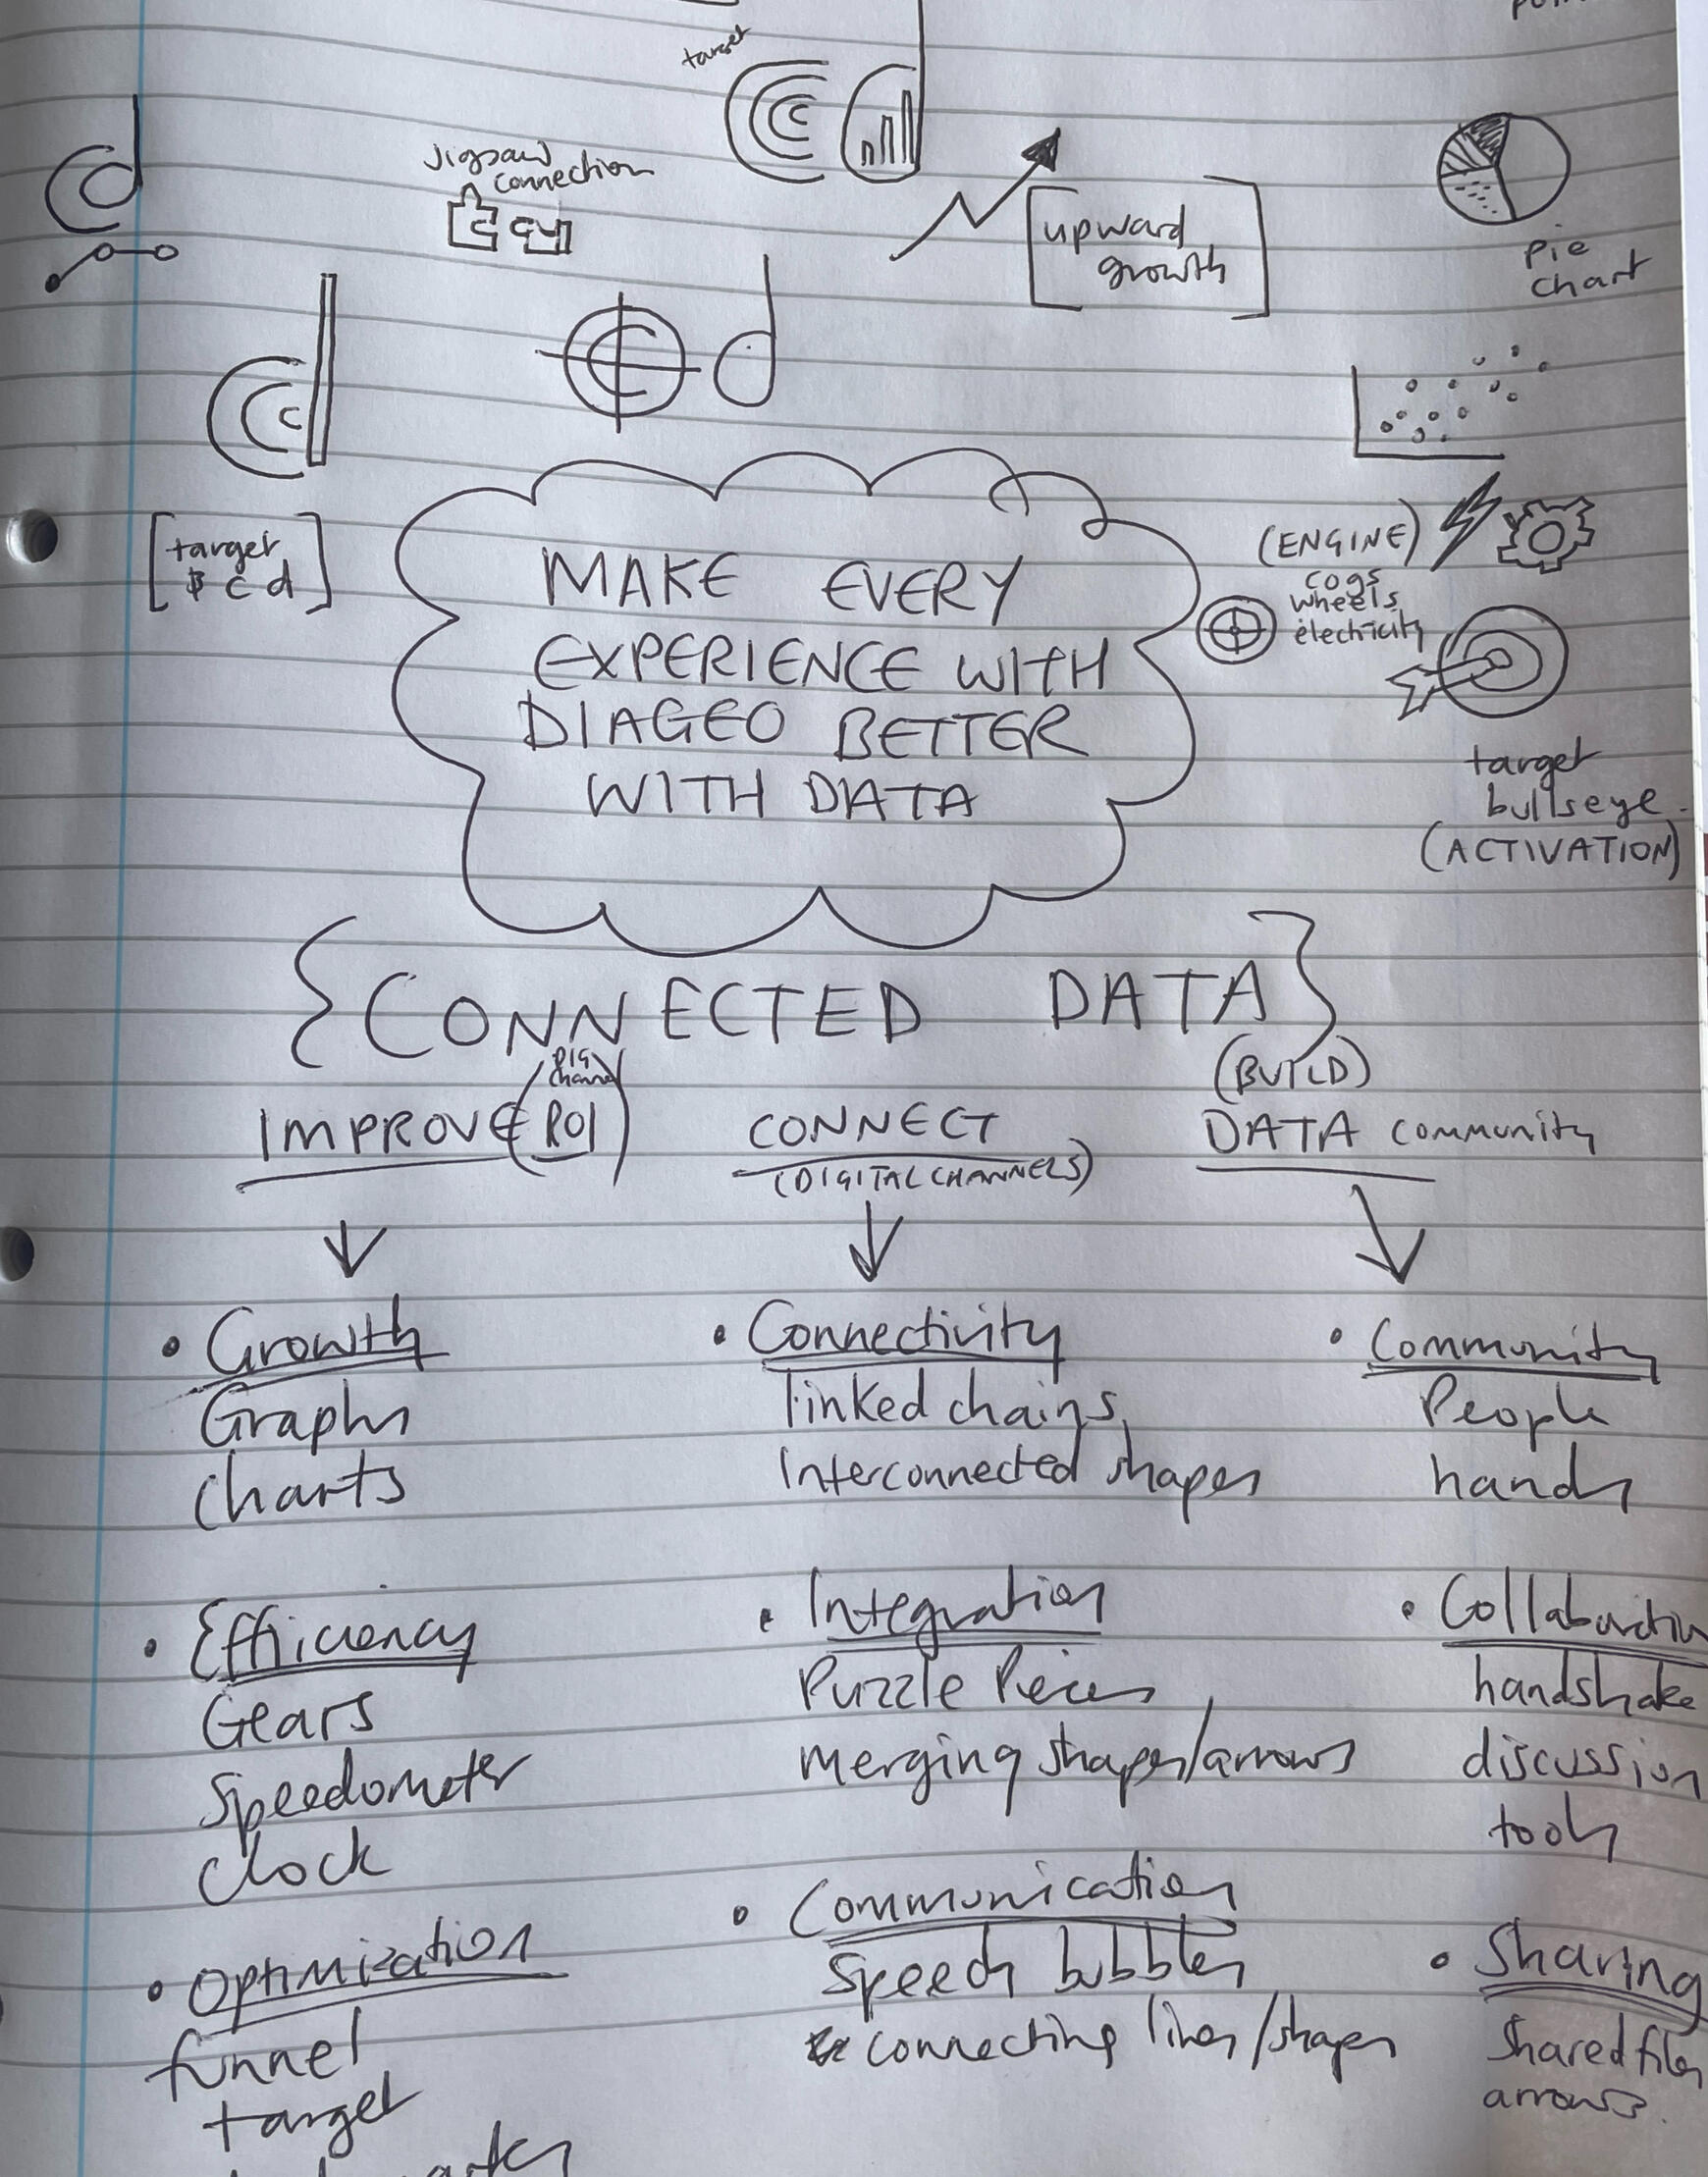 target
Jigsaw
connection
upward
growth
pie
chart
target
c d
(ENGINE)
cogs
wheels
electicity
target
bullseye
(ACTIVATION)
MAKE EVERY
EXPERIENCE WITH
DIAGEO BETTER
WITH DATA
{CONNECTED DATA}
channel
IMPROVE (ROI)
CONNECT
(DIGITAL CHANNELS)
(BUILD)
DATA community
• Growth
Graphs
charts
• Efficiency
Gears
Speedometer
clock
• Optimization
funnel
target
• Connectivity
linked chains
Interconnected shapes
• Integration
Puzzle Pieces
merging shapes/arrows
• Communication
Speech bubbles
connecting lines/shapes
• Community
People
hands
• Collaboration
handshake
discussion
tools
• Sharing
Shared files
arrows.